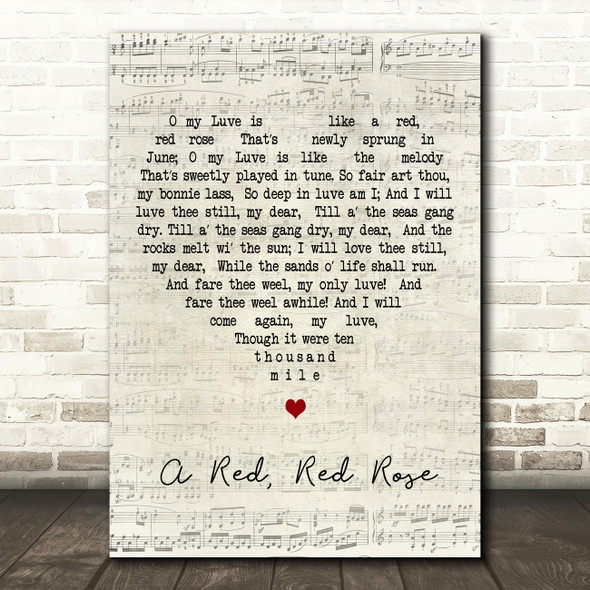 O my Luve is like a red,
red rose That's newly sprung in
June; O my Luve is like the melody
That's sweetly played in tune. So fair art thou,
my bonnie lass, So deep in luve am I; And I will
luve thee still, my dear, Till a' the seas gang
dry. Till a' the seas gang dry, my dear, And the
rocks melt wi' the sun; I will love thee still,
my dear, While the sands o' life shall run.
And fare thee weel, my only luve! And
fare thee weel awhile! And I will
come again, my luve,
Though it were ten
thousand
mile
A Red, Red Rose